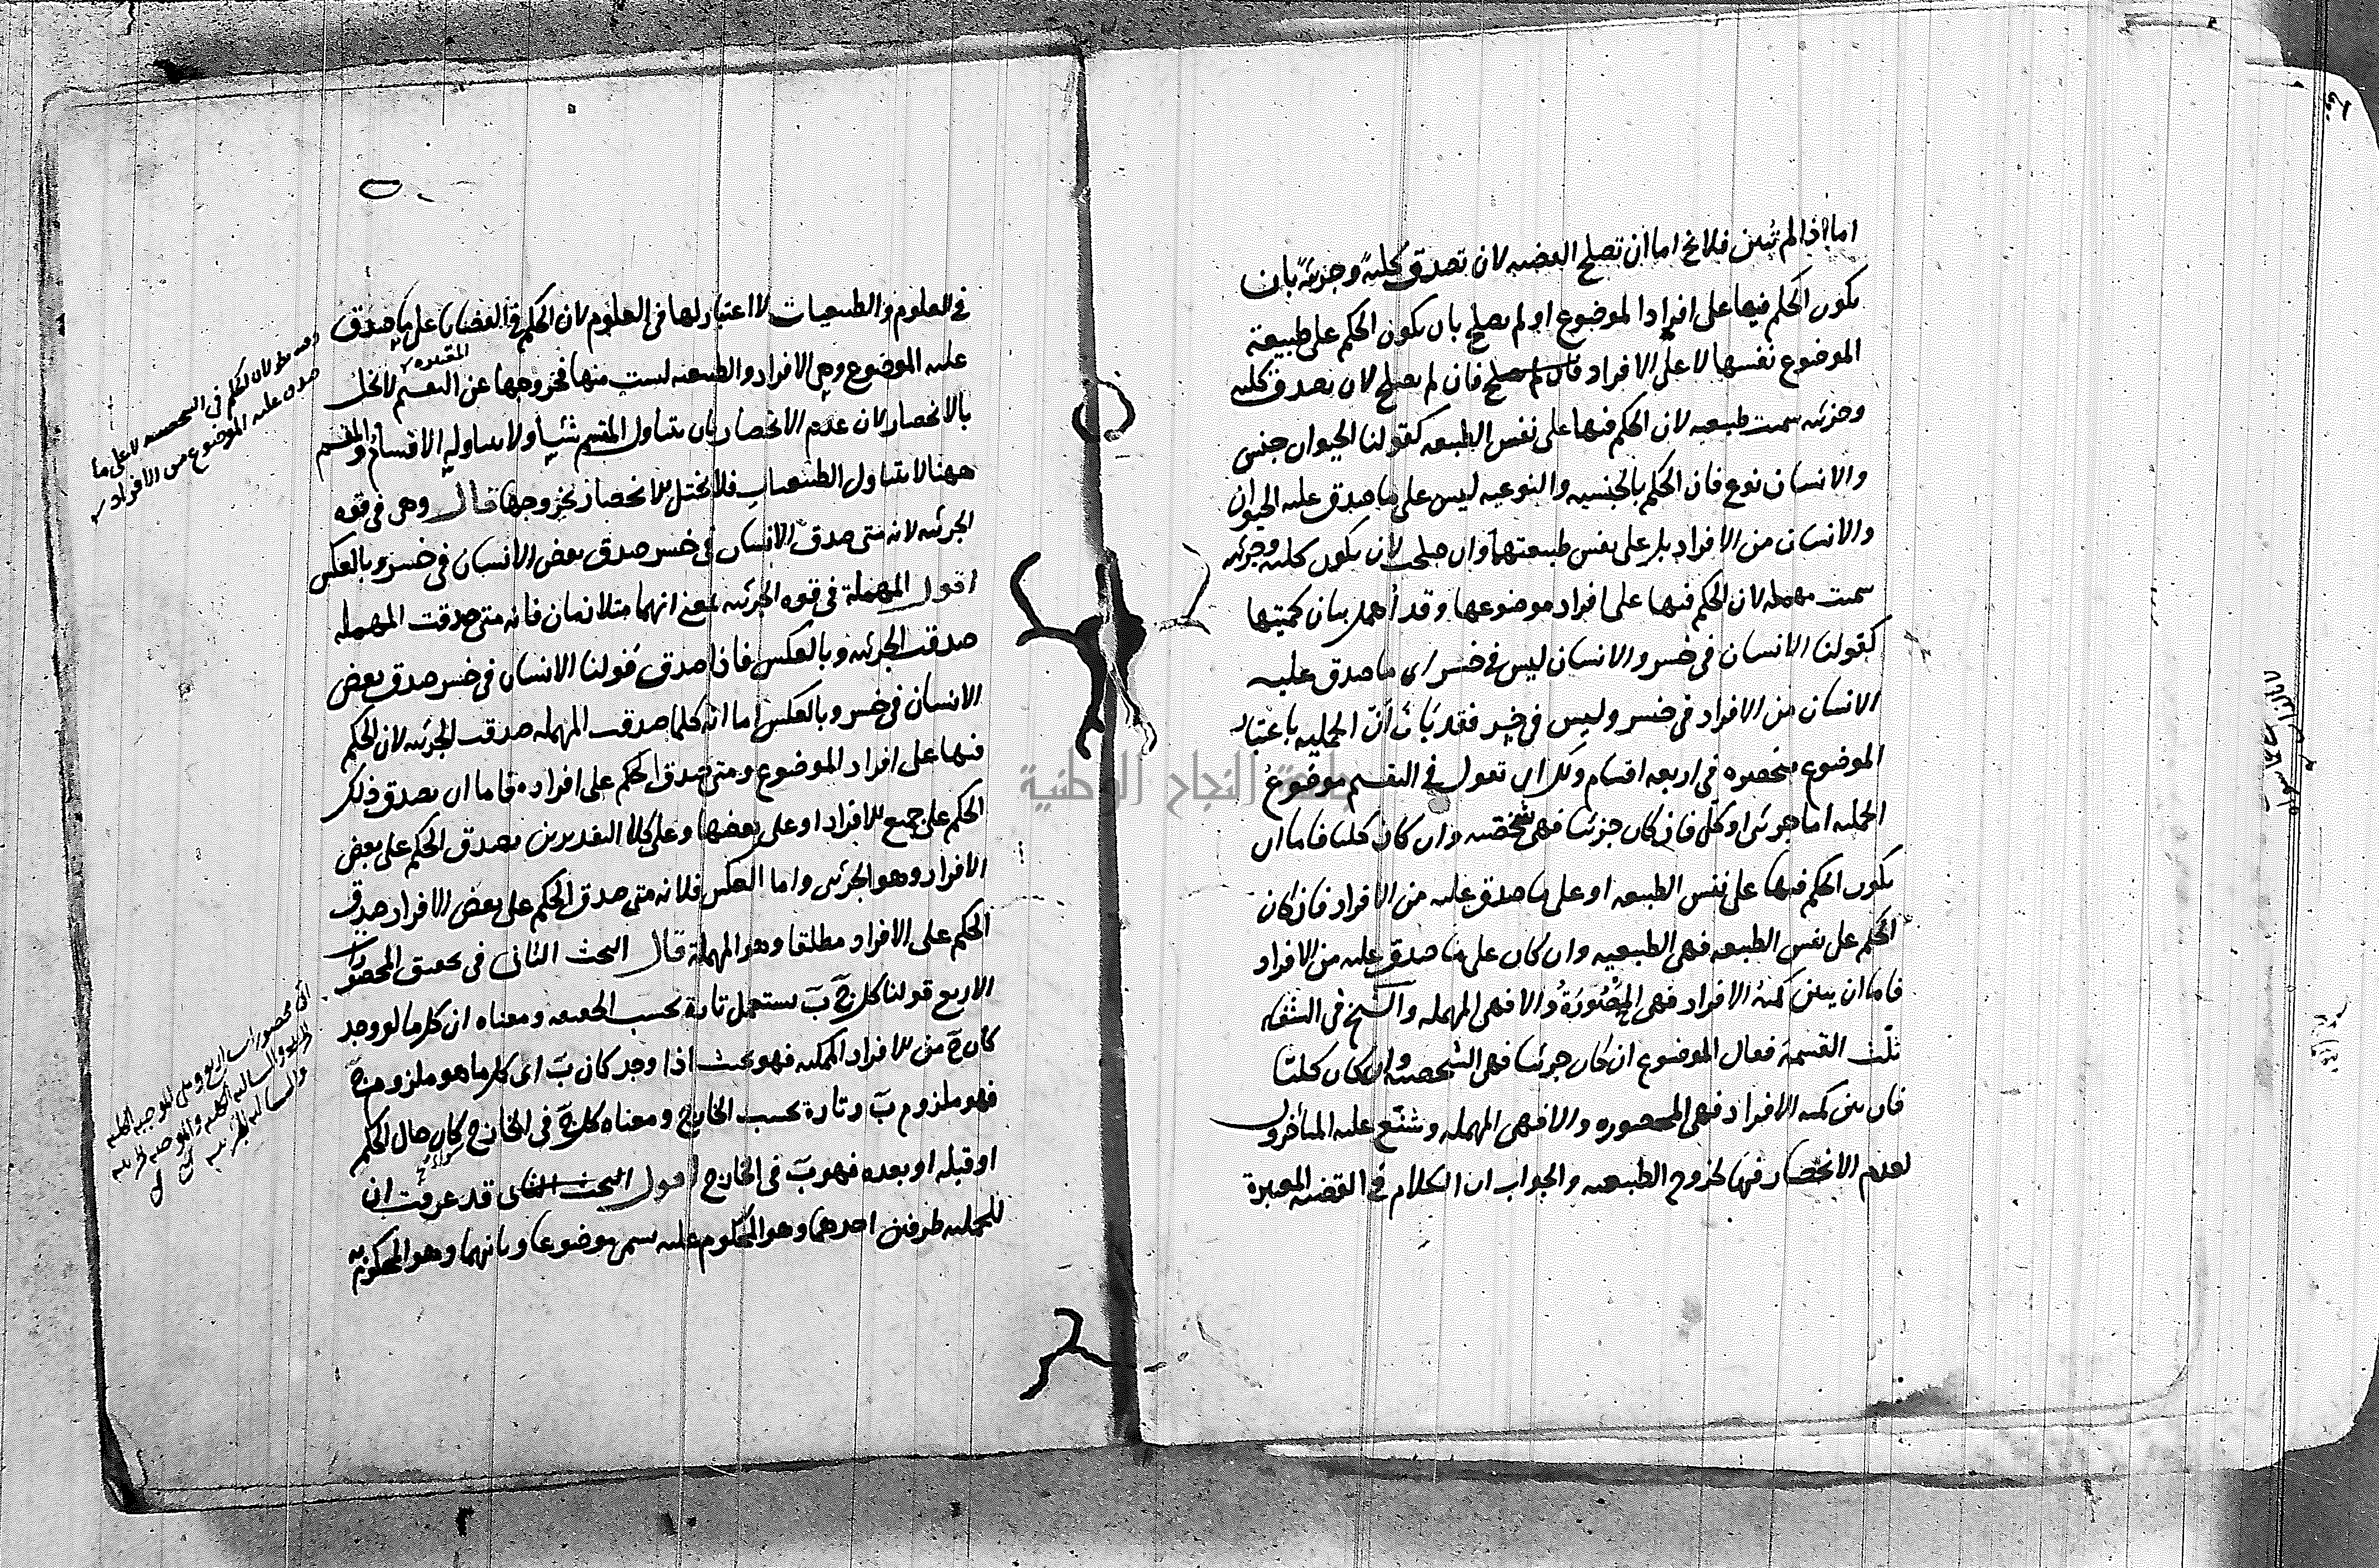 اما اذا لم تبين فلا يخ اما ان تصلح القضيه لان تصدق كليةً وجزئيةً بان
يكون الحكم فيها على افراد الموضوع او لم يصلح بان يكون الحكم على طبيعة
الموضوع نفسها لا على الافراد فان لم يصلح فان لم يصلح لان يصدق كليه
وجزئيه سميت طبيعيه لان الحكم فيها على نفس الطبيعه كقولنا الحيوان جنس
والانسان نوع فان الحكم بالجنسيه والنوعيه ليس على ما صدق عليه الحيوان
والانسان من الافراد بل على نفس طبيعتهما وان صلحت لان يكون كليه وجزئيه
سميت مهمله لان الحكم فيها على افراد موضوعها وقد أهمل بيان كميتها
كقولنا الانسان في خسر والانسان ليس في خسر اى ما صدق عليه
الانسان من الافراد في خسر وليس في خسر فقد بان أنّ الحمليه باعتبار
الموضوع منحصره في اربعه اقسام ولك ان تقول في التقسيم موضوعُ
الحمليه اما جزئى او كلّى فان كان جزئيا فهى شخصيه وان كان كليا فاما ان
يكون الحكم فيها على نفس الطبيعه او على ما صدق عليه من الافراد فان كان
الحكم على نفس الطبيعه فهى الطبيعيه وان كان على ما صدق عليه من الافراد
فاما ان يبين كميّة الافراد فهى المحصورةُ والا فهى المهمله والشيخ في الشفاء
ثلّث القسمة فقال الموضوع ان كان جزئيا فهى الشخصيه وان كان كليّا
فان بين كميه الافراد فهى المحصوره والا فهى المهمله وشنّع عليه المتأخرون
لعدم الانحصار فيها لخروج الطبيعيه والجواب ان الكلام في القضيه المعبرة
في العلوم والطبيعيات لا اعتبار لها في العلوم لان الحكم في القضايا على ما صدق
عليه الموضوع وهى الافراد والطبيعيه ليست منها فخروجها عن التقسيم لا يخل
بالانحصار لان عدم الانحصار بان يتناول المقسم شيأ ولا يتناوله الاقسام والمقسم
ههنا لا يتناول الطبيعيات فلا يختل الانحصار بخروجها قال وهى في قوه
الجزئيه لانه متى صدق الانسان في خسر صدق بعض الانسان في خسر وبالعكس
اقول المهملة في قوه الجزئيه بمعنى انهما متلازمان فانه متى صدقت المهمله
صدقت الجزئيه وبالعكس فاذا صدق قولنا الانسان في خسر صدق بعض
الانسان في خسر وبالعكس اما انه كلما صدقت المهمله صدقت الجزئيه لان الحكم
فيها على افراد الموضوع ومتى صدق الحكم على افراده فاما ان يصدق ذلك
الحكم على جميع الافراد او على بعضها وعلى كلا التقديرين يصدق الحكم على بعض
الافراد وهو الجزئى واما العكس فلانه متى صدق الحكم على بعض الافراد صدق
الحكم على الافراد مطلقا وهو المهملة قال البحث الثانى في تحقيق المحصورات
الاربع قولنا كل جَ بَ يستعمل تارة بحسب الحقيقه ومعناه ان كل ما لو وجد
كان جَ من الافراد الممكنه فهو بحيث اذا وجد كان بَ اى كل ما هو ملزوم جَ
فهو ملزوم بَ وتارة بحسب الخارج ومعناه كل جَ في الخارج كان حال الحكم
او قبله او بعده فهو بَ في الخارج اقول البحث الثانى قد عرفت ان
للحمليه طرفين احدهما وهو المحكوم عليه يسمى موضوعا وثانيهما وهو المحكوم به
وفيه نظر لان الحكم في الشخصيه لا على ما
صدق عليه الموضوع من الافراد
اى محصورات اربع وهى الموجبه الكليه
والسالبه الكليه والموجبه الجزئيه
والسالبه الجزئيه
جامعة النجاح الوطنية